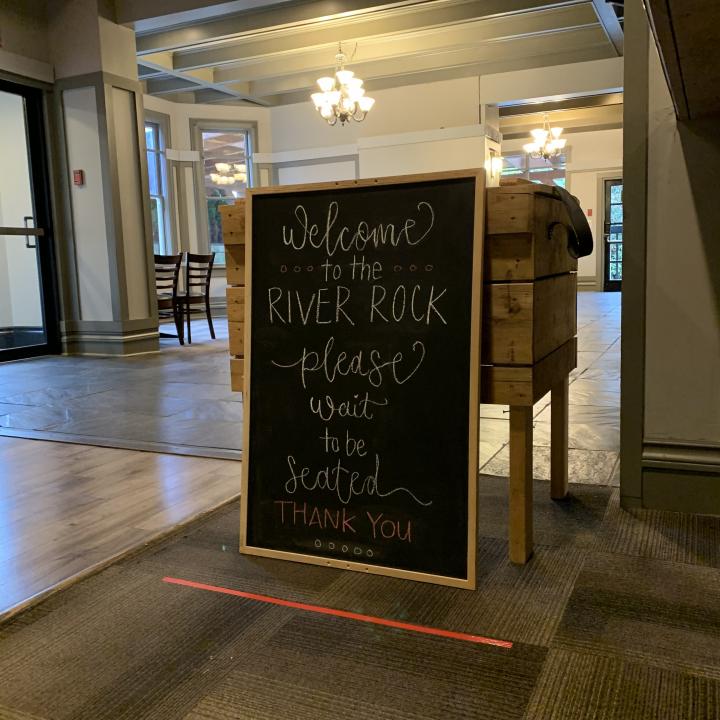 welcome
to the
RIVER ROCK
please
wait
to be
Seated
THANK YOU